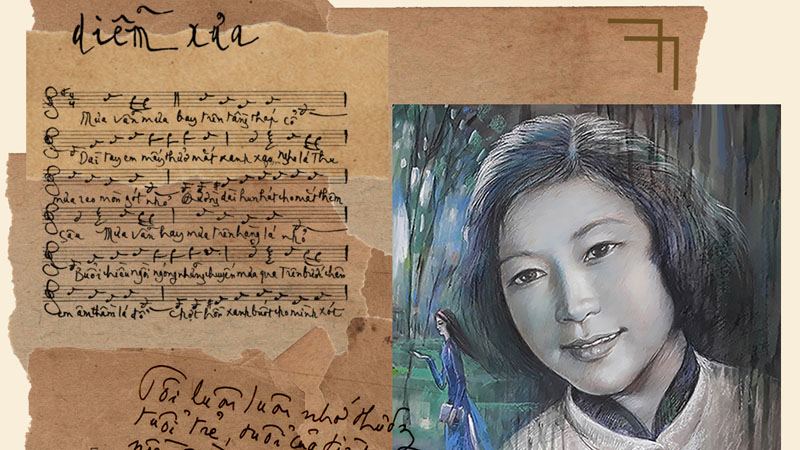 diễm xưa
Mưa vẫn mưa bay trên tầng tháp cổ
Dài tay em mấy thuở mắt xanh xao, Nghe lá thu
mưa reo mòn gót nhỏ Đường dài hun hút cho mắt thêm
sâu Mưa vẫn hay mưa trên hàng lá nhỏ
Buổi chiều ngồi ngóng những chuyến mưa qua Trên bước chân
em âm thầm lá đổ Chợt hồn xanh buốt cho mình xót
Tôi luôn luôn nhớ
tuổi trẻ, tuổi